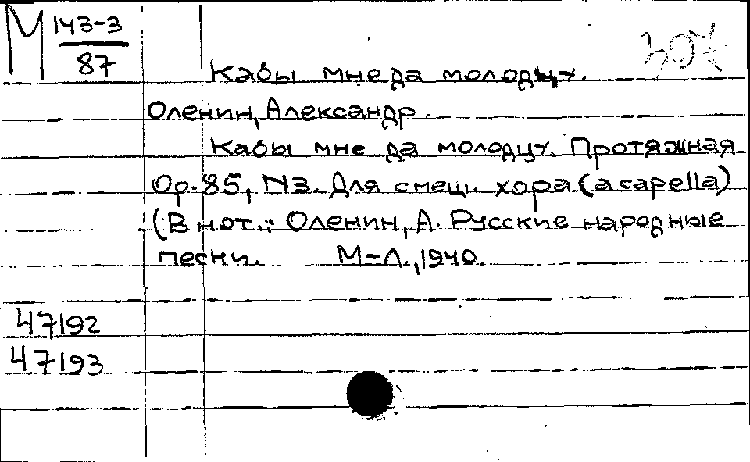 М 143-3
87
307
Кабы мне да молодцу.
Оленин, Александр.
Кабы мне да молодцу. Протяжная
Op. 85, N3. Для смеш. хора (a capella)
(В нот.: Оленин, А. Русские народные
песни. М-Л., 1940.
47192
47193